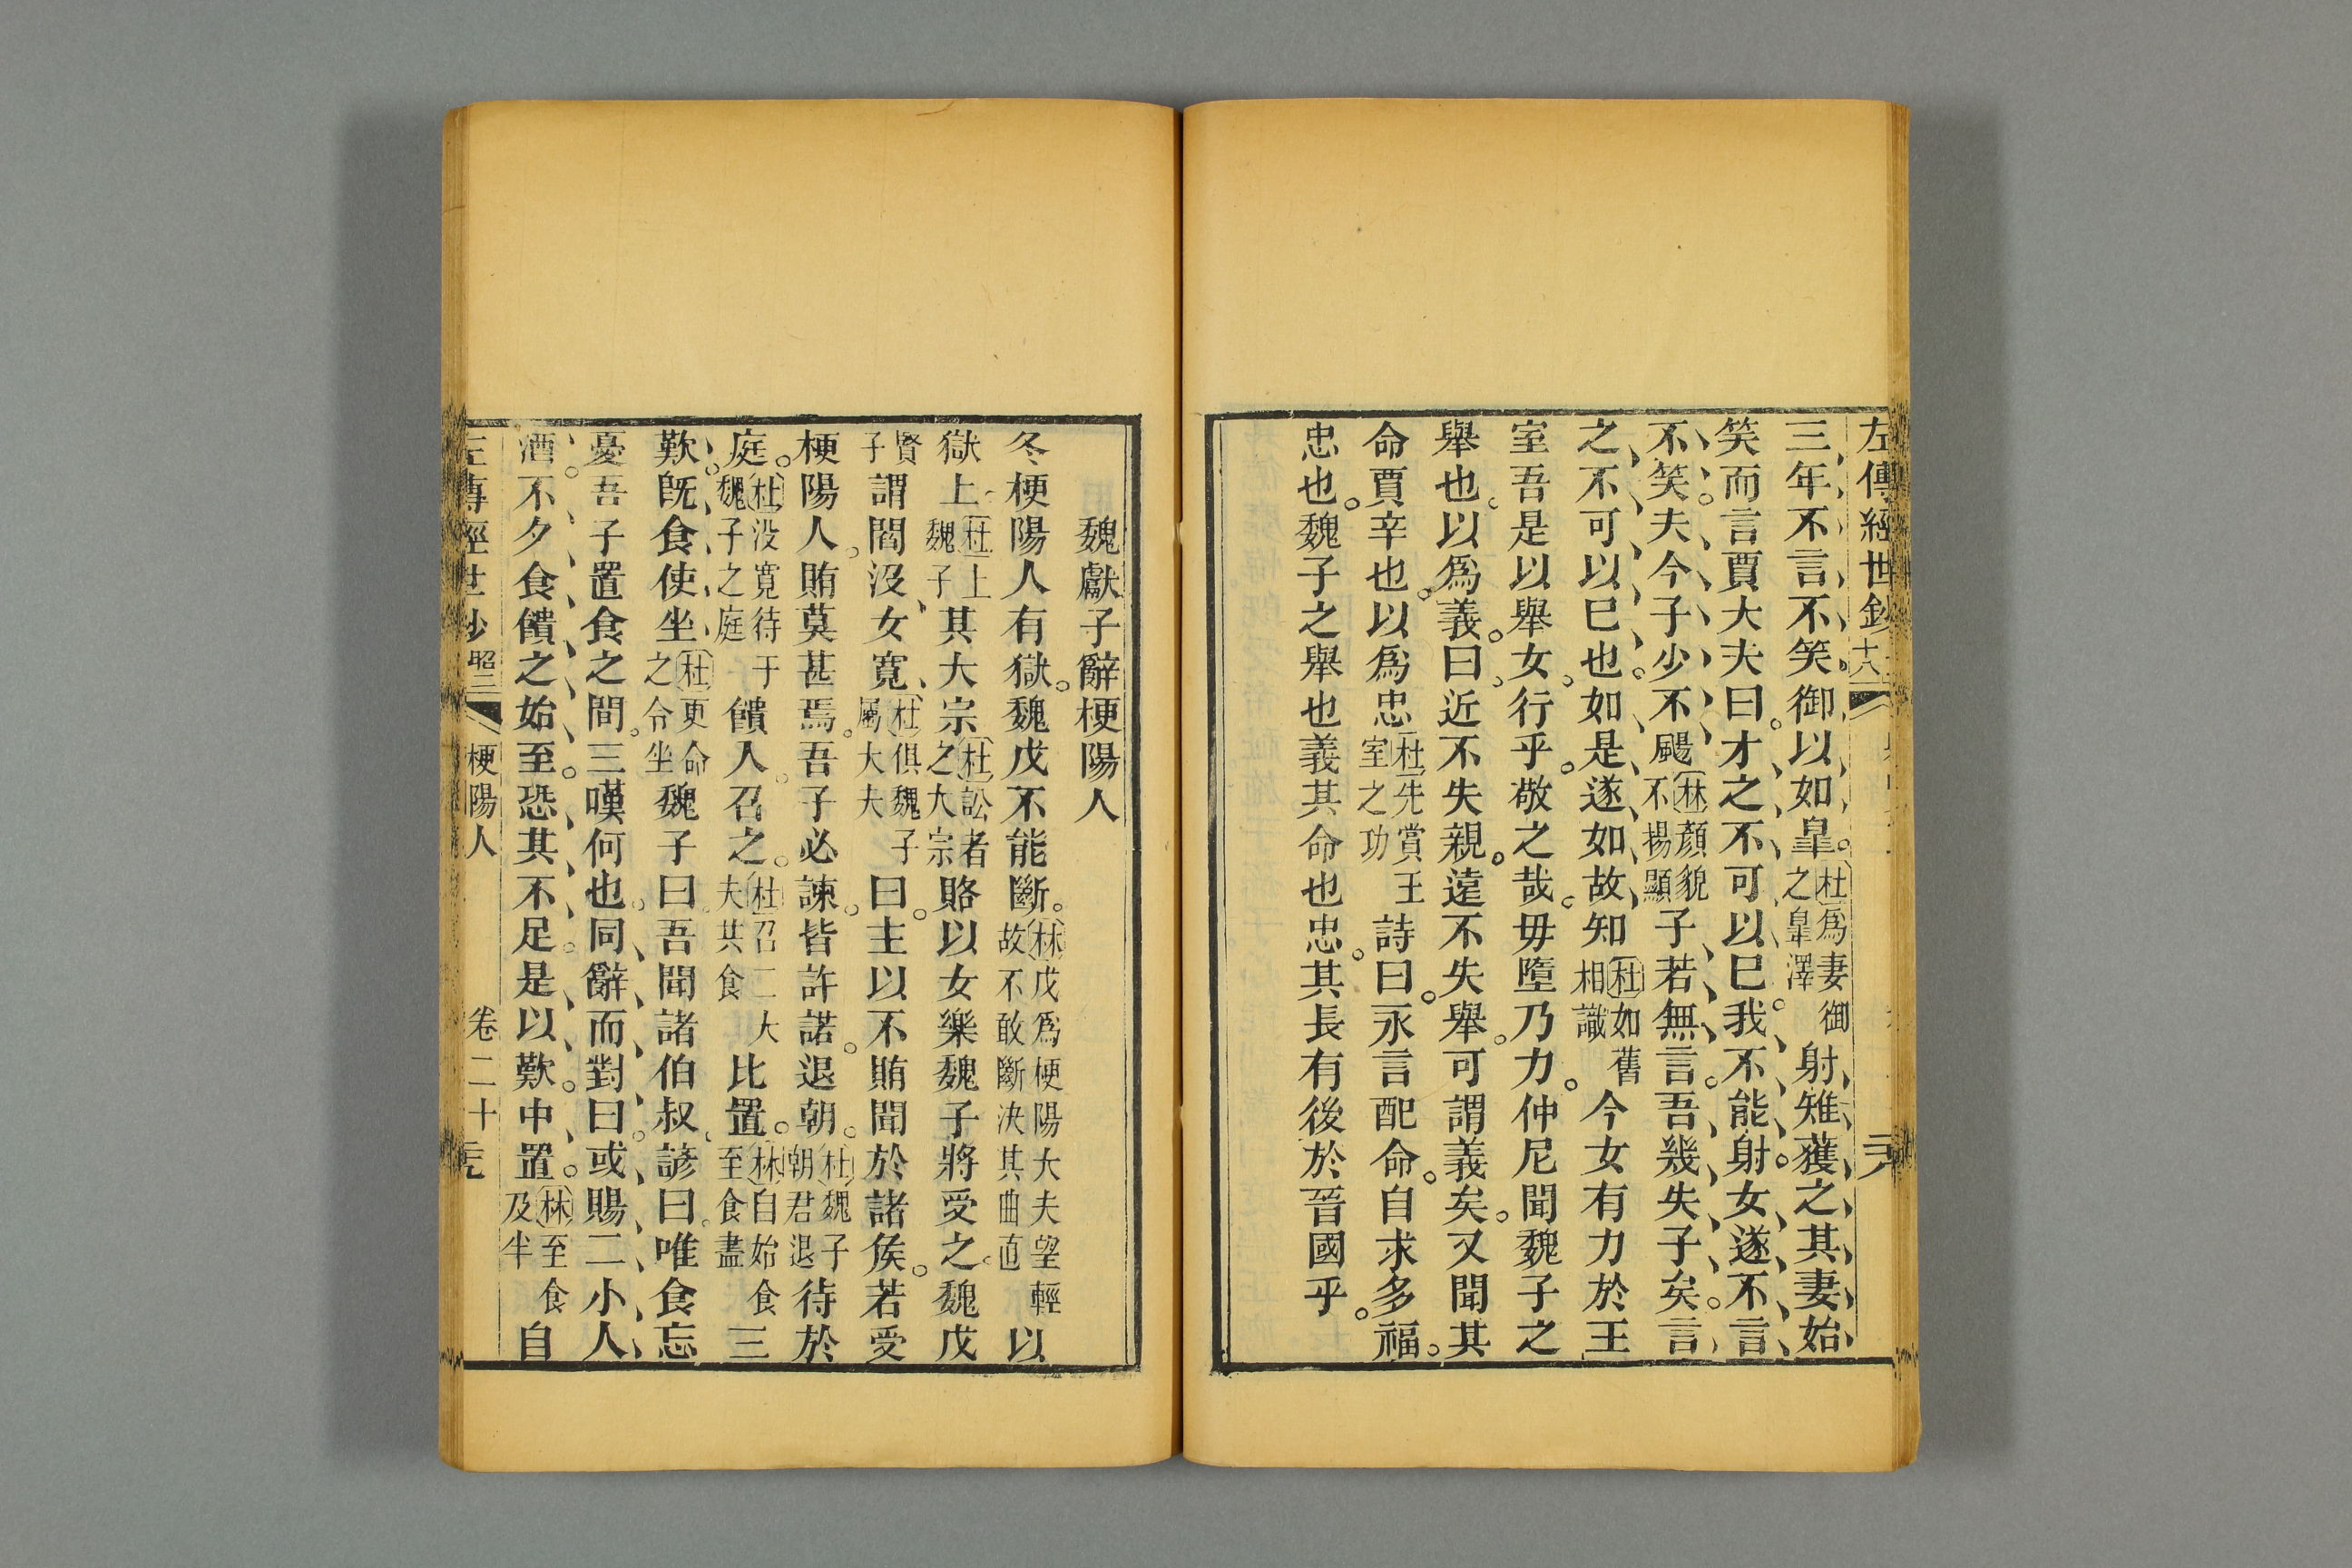 左傳經世鈔
三年不言不笑御以如臯杜爲妻御之臯澤射雉獲之其妻始
笑而言賈大夫曰才之不可以已我不能射女遂不言
不笑夫今子少不颺林顏貌不揚顯子若無言吾幾失子矣言
之不可以已也如是遂如故知杜如舊相識今女有力於王
室吾是以舉女行乎敬之哉毋墮乃力仲尼聞魏子之
舉也以爲義曰近不失親遠不失舉可謂義矣又聞其
命賈辛也以爲忠杜先賞王室之功詩曰永言配命自求多福
忠也魏子之舉也義其命也忠其長有後於晉國乎
魏獻子辭梗陽人
冬梗陽人有獄魏戊不能斷林戊爲梗陽大夫望輕故不敢斷決其曲直以
獄上杜上魏子其大宗杜訟者之大宗賂以女樂魏子將受之魏戊
賢子謂閻沒女寬杜俱魏子屬大夫曰主以不賄聞於諸侯若受
梗陽人賄莫甚焉吾子必諫皆許諾退朝杜魏子朝君退待於
庭杜沒寬待于魏子之庭饋人召之杜召二大夫共食比置林自始食至食盡三
歎旣食使坐杜更命之令坐魏子曰吾聞諸伯叔諺曰唯食忘
憂吾子置食之間三嘆何也同辭而對曰或賜二小人
酒不夕食饋之始至恐其不足是以歎中置林至食及半自
左傳經世鈔 昭三 梗陽人 卷二十